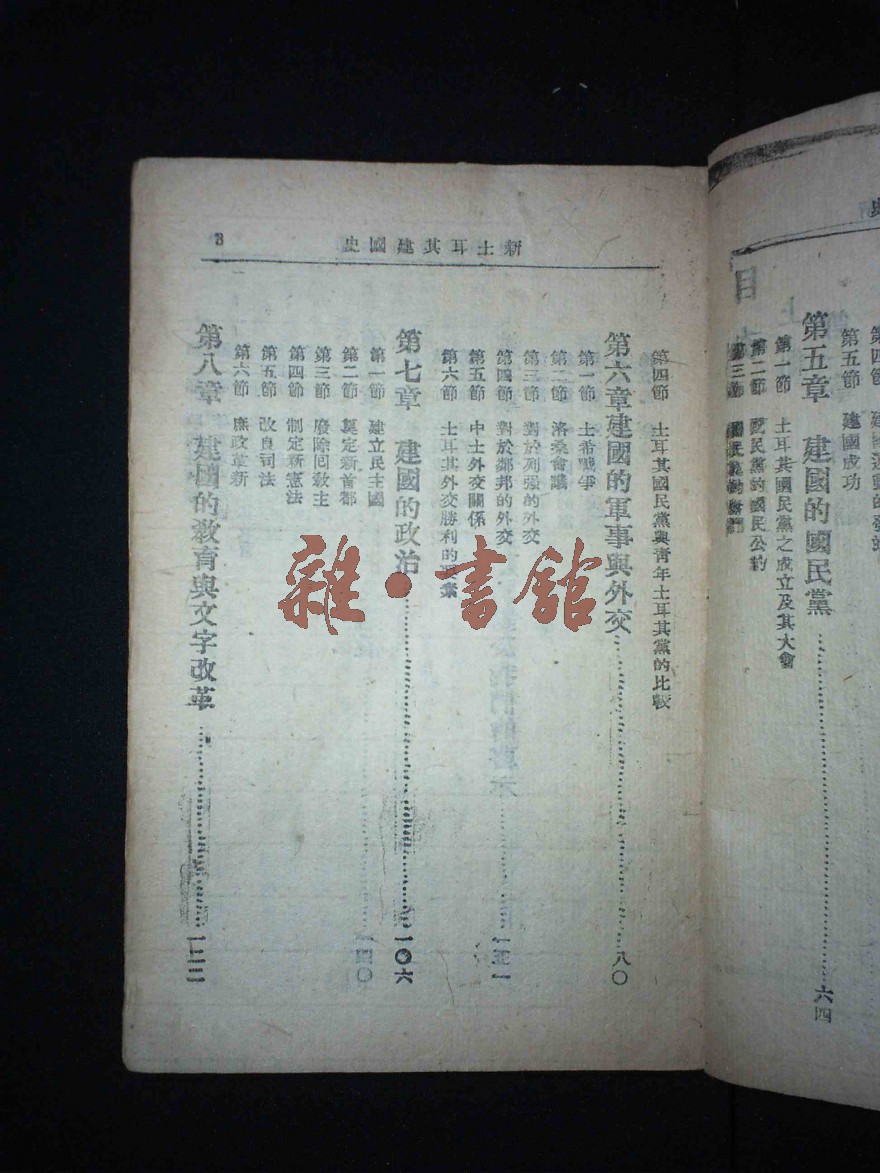 第四節 建國運動的發
第五節 建國成功
第五章 建國的國民黨 六四
第一節 土耳其國民黨之成立及其大會
第二節 國民黨的國民公約
第三節
新土耳其建國史
3
第四節 土耳其國民黨與青年土耳其黨的比較
第六章建國的軍事與外交 八〇
第一節 土希戰爭
第二節 洛桑會議
第三節 對於列强的外交
第四節 對於鄰邦的外交
第五節 中土外交關係
第六節 土耳其外交勝利的要素
第七章 建國的政治 一〇六
第一節 建立民主國
第二節 奠定新首都
第三節 廢除回敎主
第四節 制定新憲法
第五節 改良司法
第六節 庶政革新
第八章 建國的敎育與文字改革 一二二
雜·書館